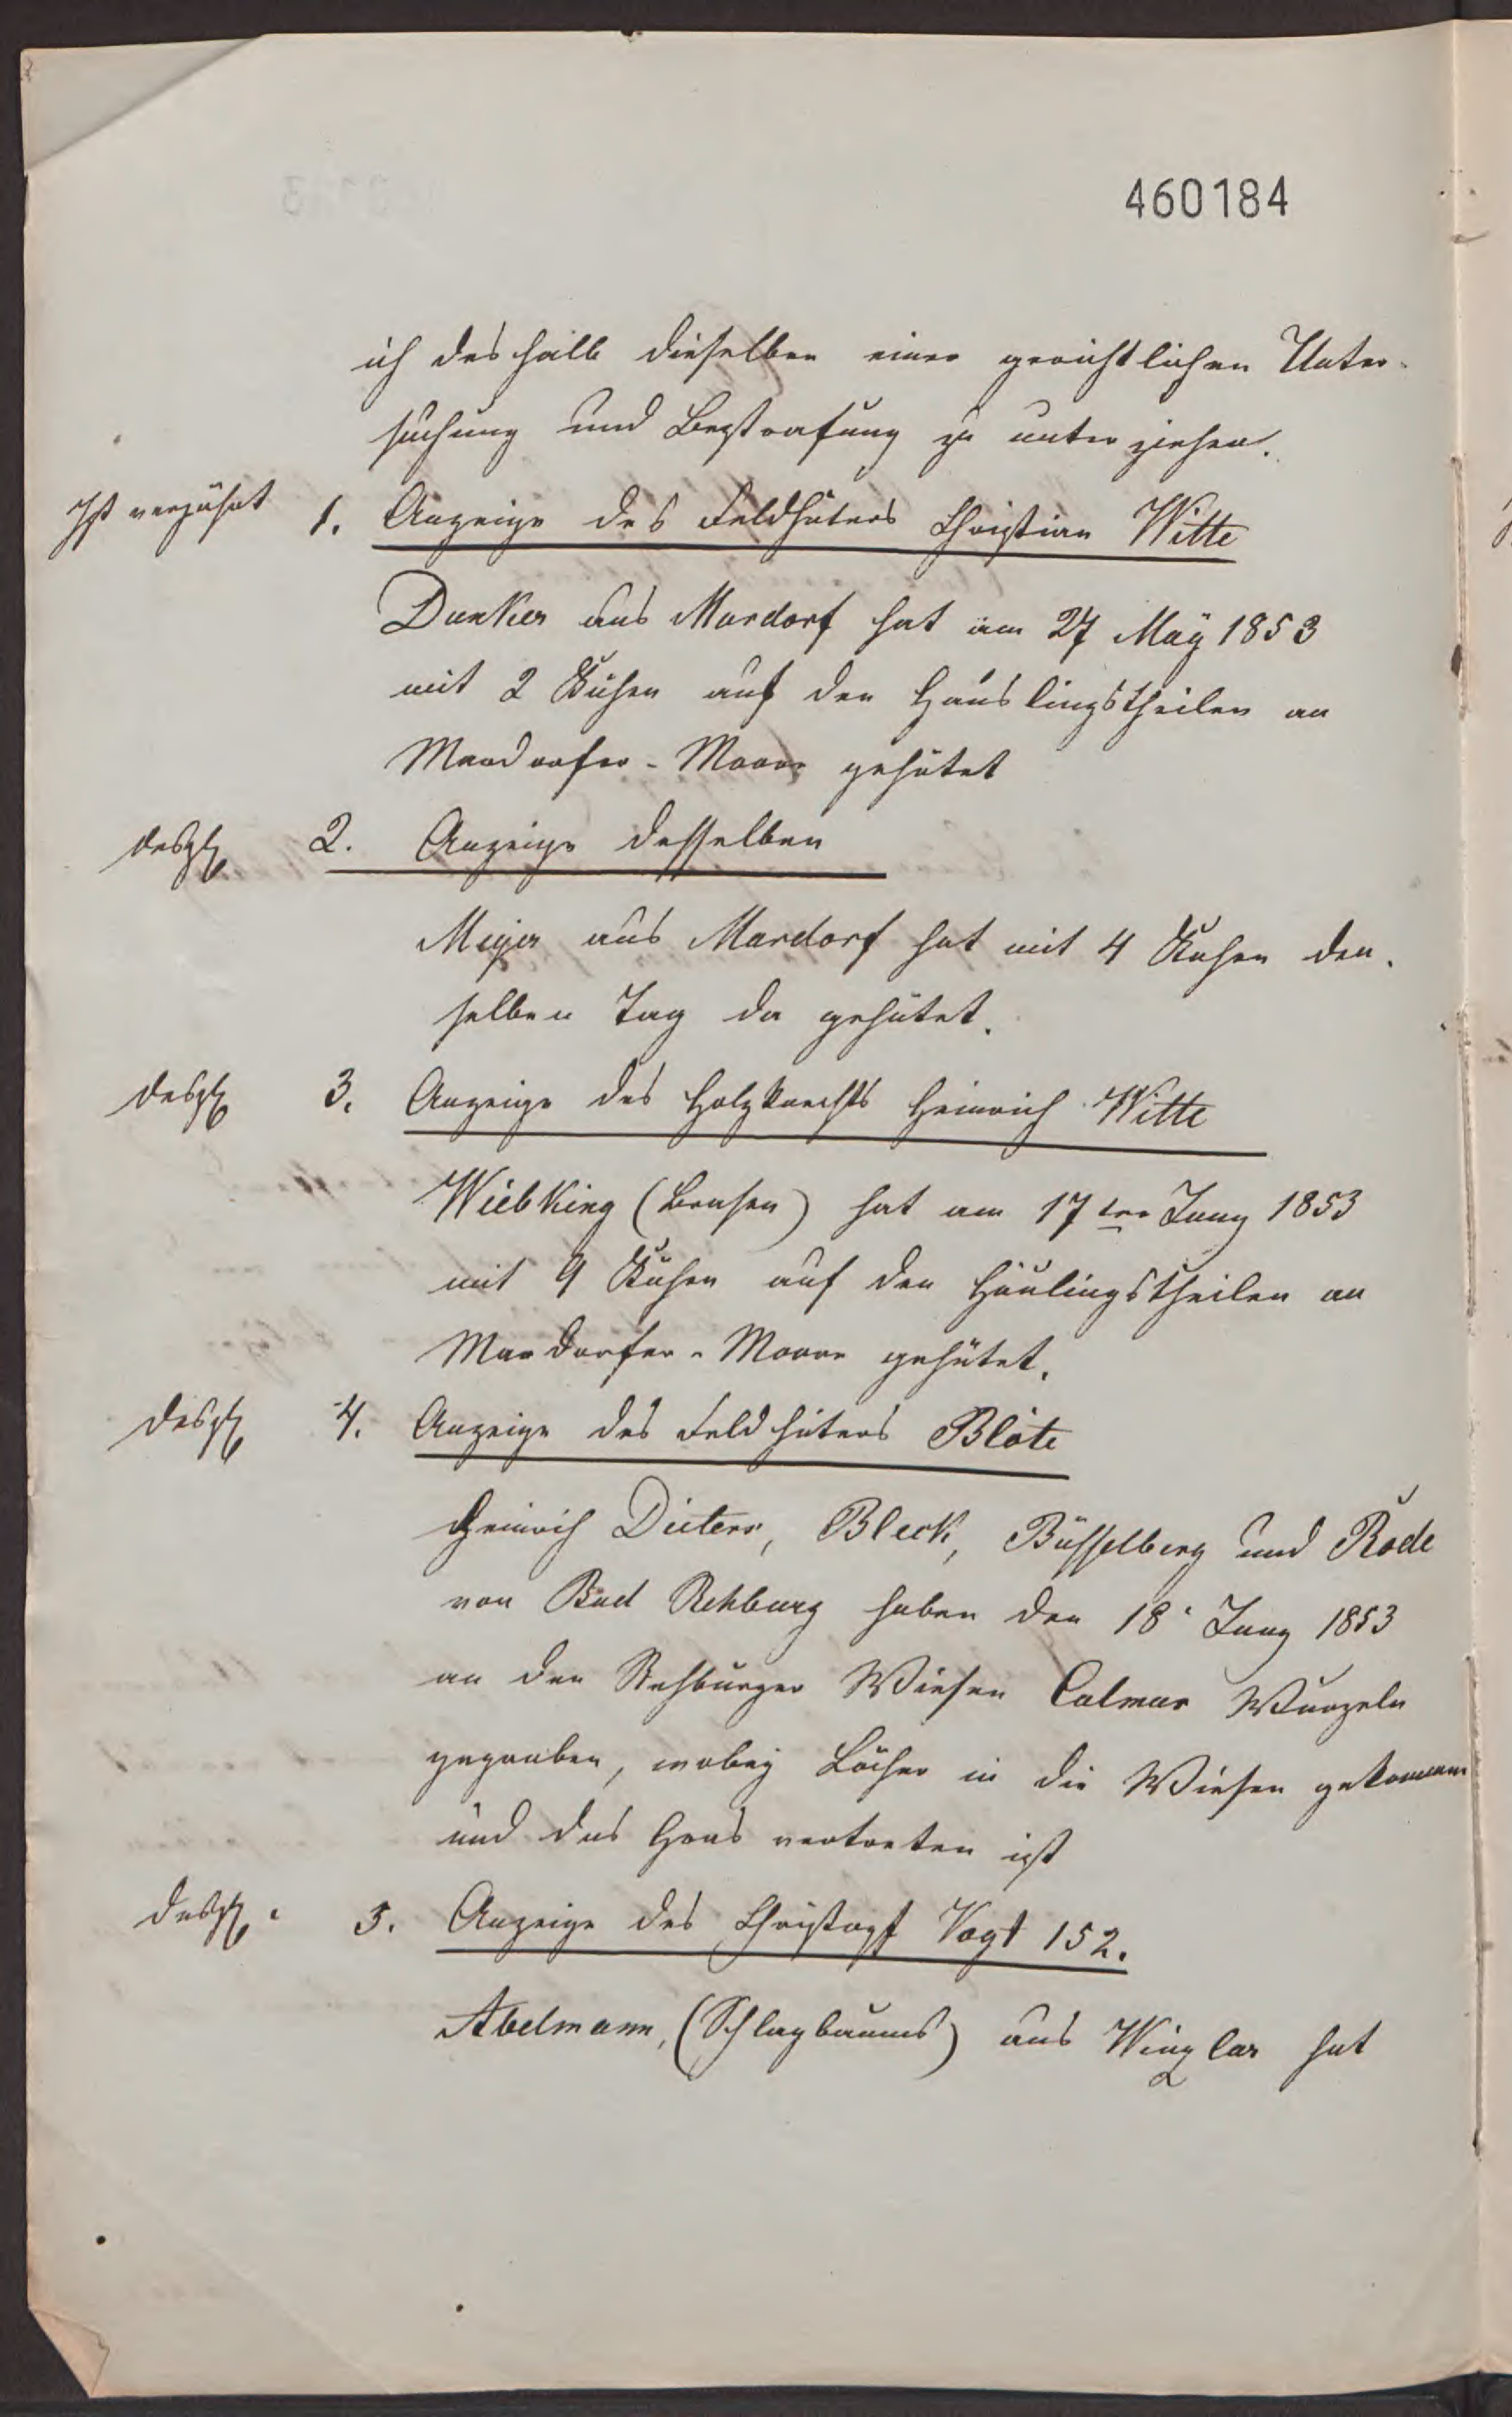 460184
ich deshalb dieselben einer gerichtlichen Unter-
suchung und Bestrafung zu unterziehen.
Ist verjährt 1. Anzeige des Feldhüters Christian Witte
Dunker aus Mardorf hat am 27 May 1853
mit 2 Kühen auf den Häuslingstheilen an
Mardorfer-Moore gehütet
desgl 2. Anzeige desselben
Meyer aus Mardorf hat mit 4 Kühen den-
selben Tag da gehütet.
desgl 3. Anzeige des Holzknechts Heinrich Witte
Wiebking (Brasen) hat am 17ten Juny 1853
mit 9 Kühen auf den Häulingstheilen an
Mardorfer-Moore gehütet.
desgl 4. Anzeige des Feldhüters Blöte
Heinrich Dieters, Bleck, Büsselberg und Rode
von Bad Rehburg haben den 18. Juny 1853
an den Rehburger Wiesen Calmus Wurzeln
gegraben, wobey Löcher in die Wiesen gekommen
und das Gras vertreten ist
desgl. 5. Anzeige des Christoph Vogt 152.
Abelmann, (Schlagbaums) aus Winzlar hat